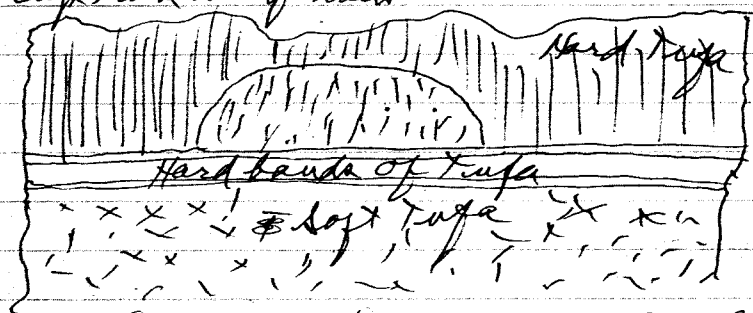 Hard Tufa
Hard bands of Tufa
Soft Tufa